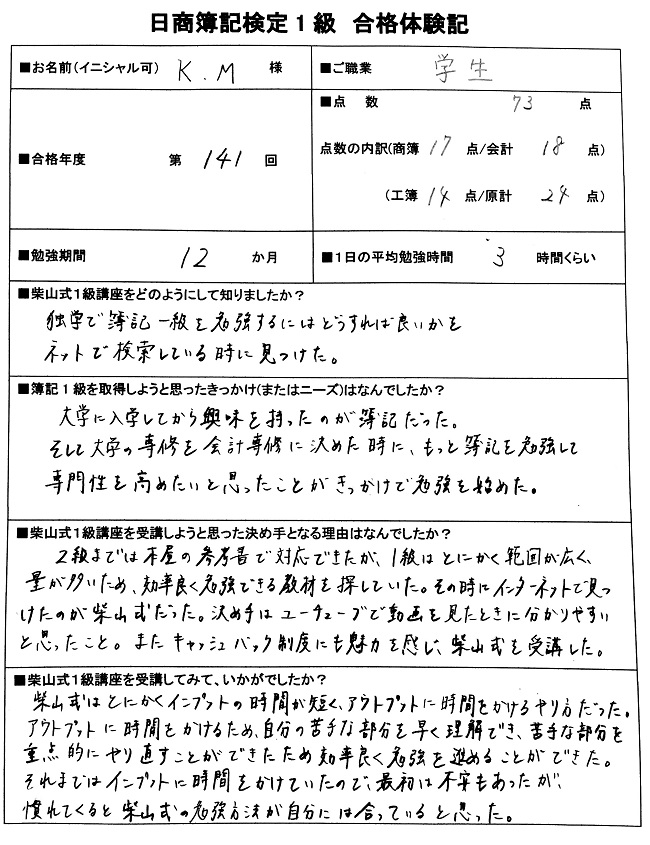 日商簿記検定1級 合格体験記
■お名前(イニシャル可) K.M 様
■ご職業 学生
■合格年度 第 141 回
■点 数 73 点
点数の内訳(商簿 17 点/会計 18 点)
(工簿 14 点/原計 24 点)
■勉強期間 12 か月
■1日の平均勉強時間 3 時間くらい
■柴山式1級講座をどのようにして知りましたか?
独学で簿記一級を勉強するにはどうすれば良いかを
ネットで検索している時に見つけた。
■簿記1級を取得しようと思ったきっかけ(またはニーズ)はなんでしたか?
大学に入学してから興味を持ったのが簿記だった。
そして大学の専修を会計専修に決めた時に、もっと簿記を勉強して
専門性を高めたいと思ったことがきっかけで勉強を始めた。
■柴山式1級講座を受講しようと思った決め手となる理由はなんでしたか?
2級までは本屋の参考書で対応できたが、1級はとにかく範囲が広く、
量が多いため、効率良く勉強できる教材を探していた。その時にインターネットで見つ
けたのが柴山式だった。決め手はユーチューブで動画を見たときに分かりやすい
と思ったこと。またキャッシュバック制度にも魅力を感じ、柴山式を受講した。
■柴山式1級講座を受講してみて、いかがでしたか?
柴山式はとにかくインプットの時間が短く、アウトプットに時間をかけるやり方だった。
アウトプットに時間をかけるため、自分の苦手な部分を早く理解でき、苦手な部分を
重点的にやり直すことができたため効率良く勉強を進めることができた。
それまではインプットに時間をかけていたので、最初は不安もあったが、
慣れてくると柴山式の勉強方法が自分には合っていると思った。